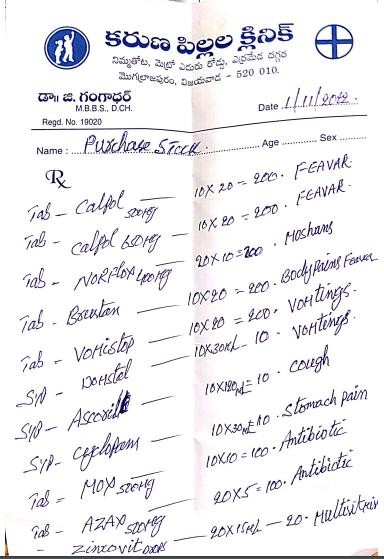 కరుణ పిల్లల క్లినిక్
నిమ్మతోట, మెట్రో ఎదురు రోడ్డు, ఎర్రమేడ దగ్గర
మొగల్రాజపురం, విజయవాడ - 520 010.
డా॥ జి. గంగాధర్
M.B.B.S., D.CH.
Regd. No. 19020
Date 1/11/2012
Name : Purchase Stock Age Sex
Rx
Tab - Calpol 500mg — 10x20=200. FEAVAR.
Tab - Calpol 650mg — 10x20=200. FEAVAR.
Tab - NORFLOX 400mg — 20x10=200 Moshans
Tab - Brustan — 10x20=200. Bodypains Feaver
Tab - Vomistop — 10x20=200. Vomtings.
Syp - Domstel — 10x30ml - 10. Vomtings.
Syp - Ascoril — 10x120ml=10. Cough
Syp - Cyclopam — 10x30ml=10. Stomach pain
Tab = MOX 500mg — 10x10=100. Antibiotic
Tab - AZAX 500mg — 20x5=100. Antibiotic
Zincovit Drops — 20x15ml - 20.